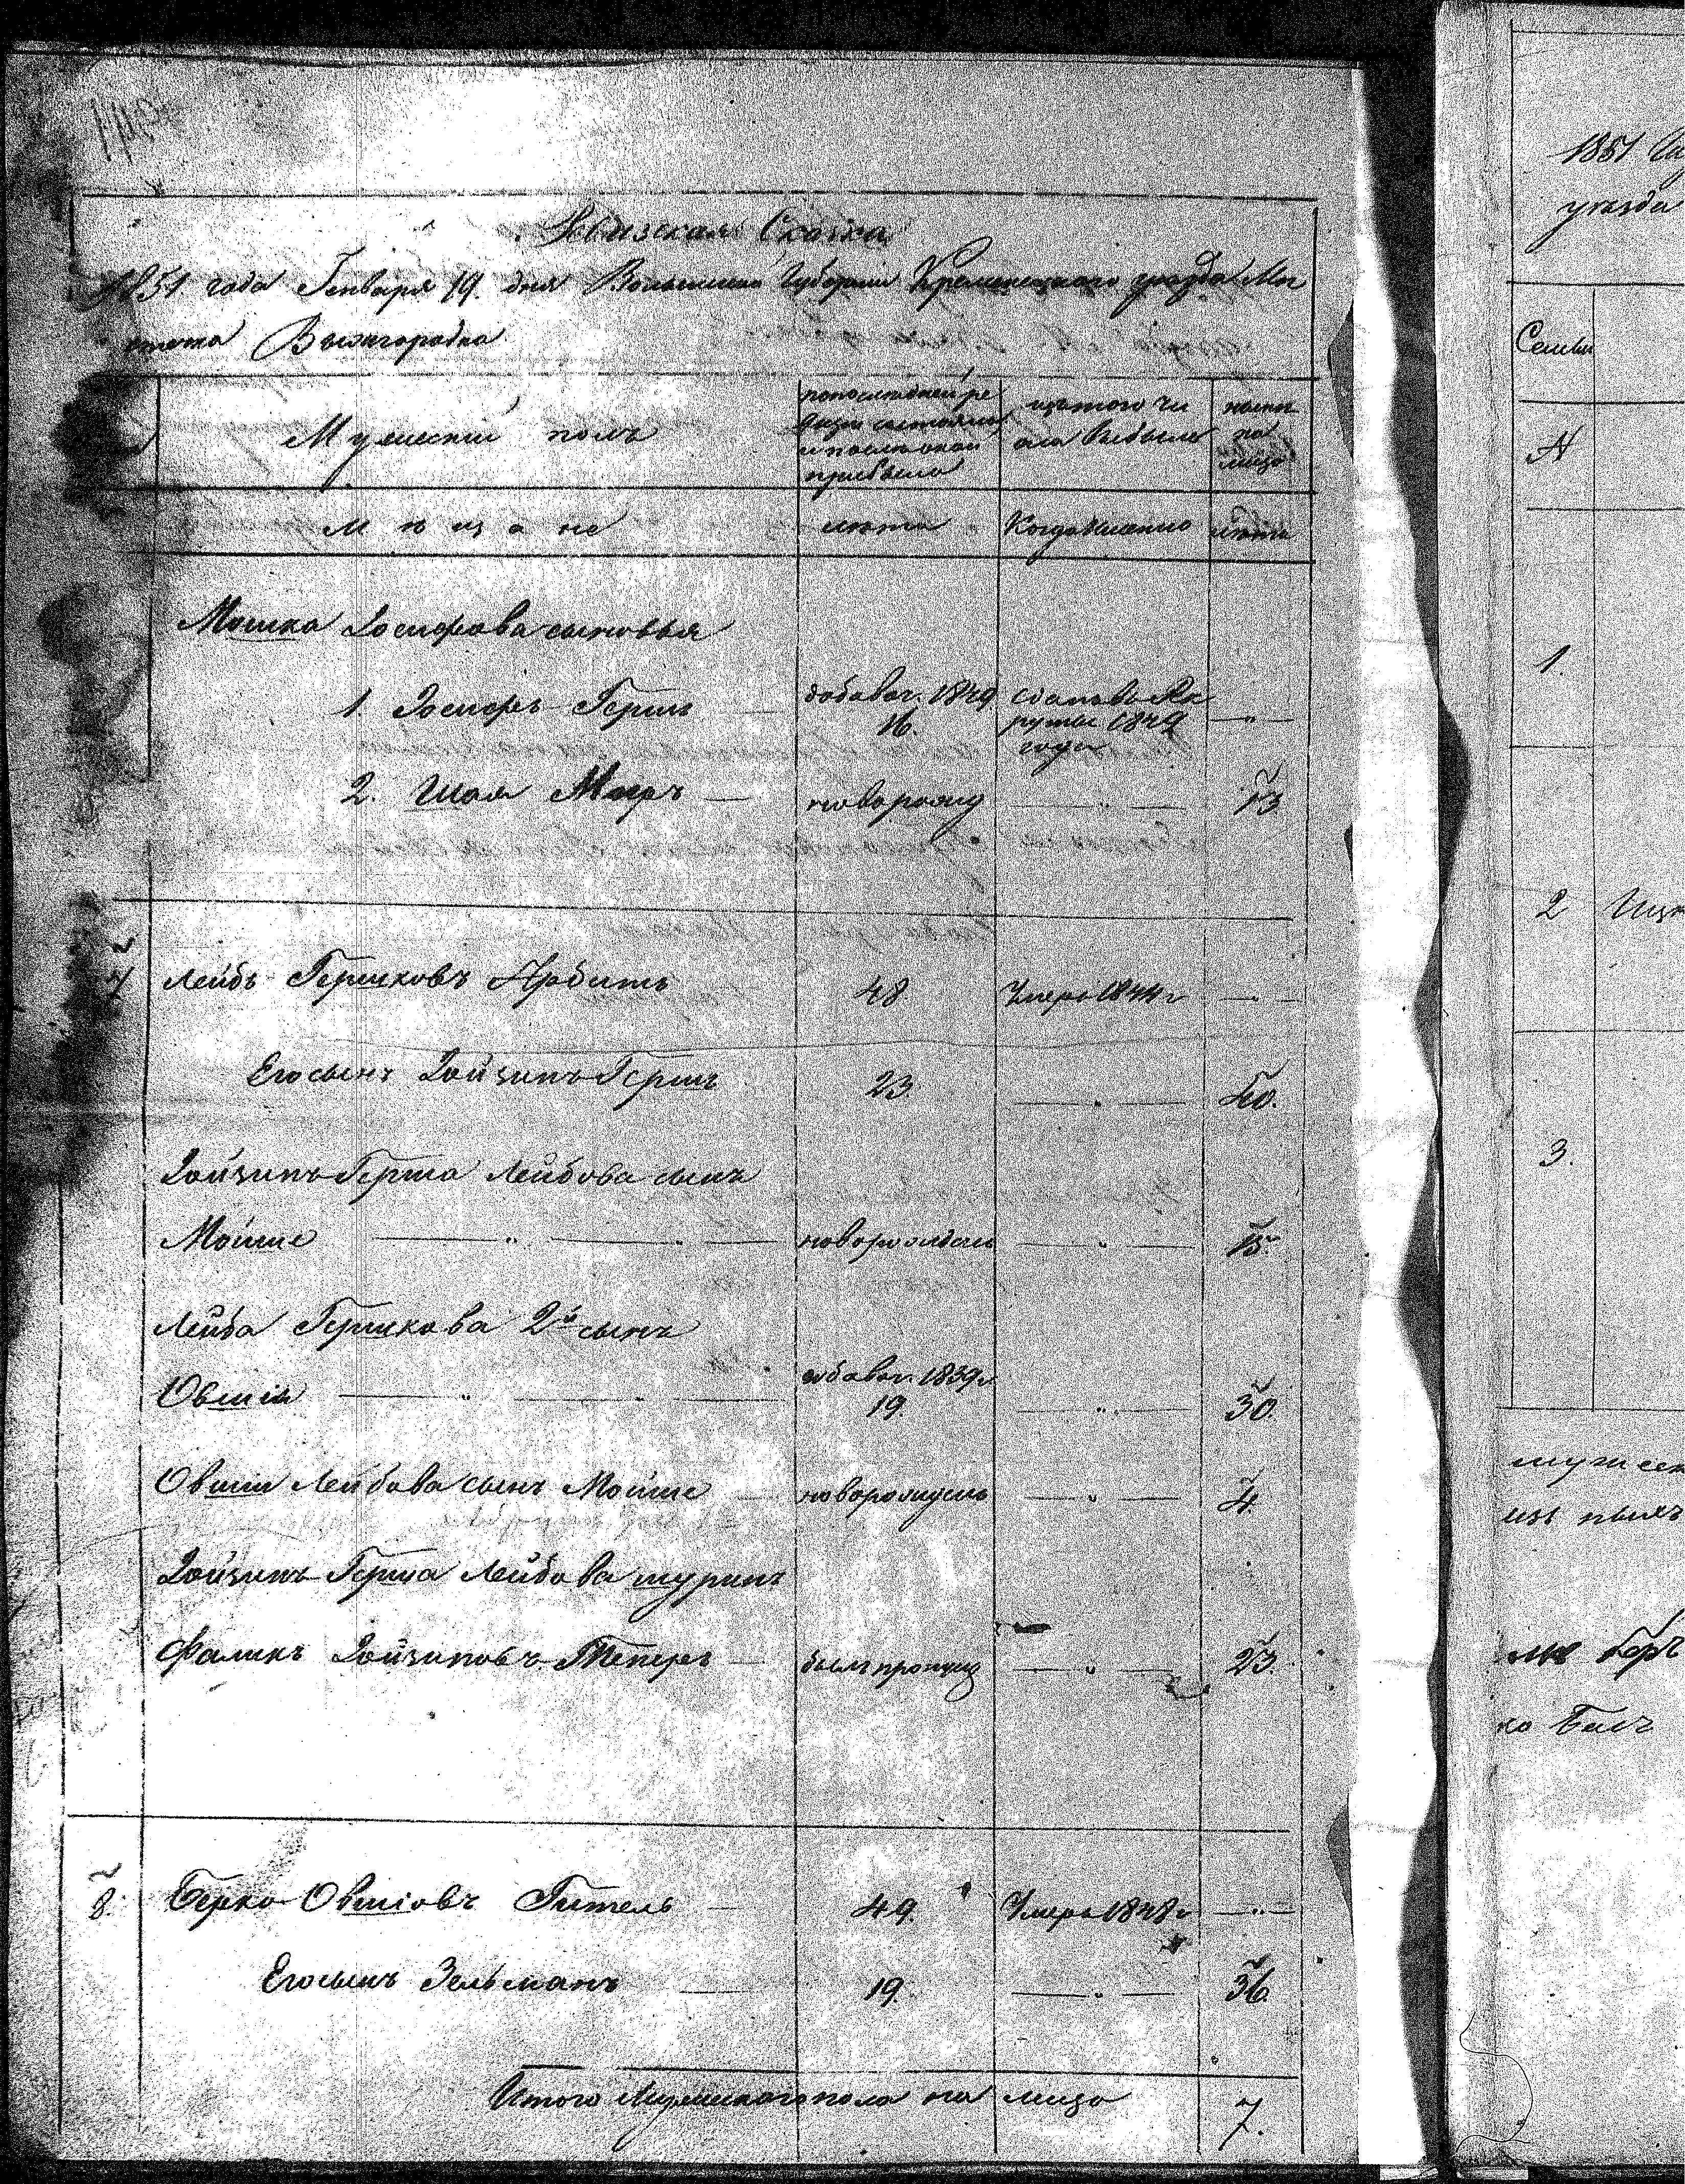 Ревизская Сказка
1851 года Генваря 19. дня Волынской Губернии Кременецкого уезда Ме
стечка Вышгородка
Мужеский полъ
попоследней ре
визии состояло
и после оной
прибыло
изтого чи
сла выбыло
ныне
на
лицо
Мещане
лета
Когда именно
лета
Мошка Іосифова сыновья
1. Іосифъ Гершъ — добавоч. 1849 16. сданъ въ Ре
круты 1849
года — " —
2. Шая Мееръ — новорожд — " — 13
7 Лейбъ Гершковъ Арбитъ 48 Умеръ 1844 г — " —
Его сынъ Іойзипъ Гершъ 23. — " — 40.
Іойзипъ Герша Лейбова сынъ
Мойше — " — " — новорожденъ — " — 15.
Лейба Гершкова 2й сынъ
Овшія — " — " — добавоч. 1839 г 19. — " — 30.
Овшіи Лейбова сынъ Мойше — новорожденъ — " — 4.
Іойзипъ Герша Лейбова шуринъ
Фаликъ Іойзиповъ Теперъ — былъ пропущ — " — 23.
8. Берко Овшіовъ Гительъ — 49. Умеръ 1848 г — " —
Его сынъ Зельманъ — 19. — " — 36.
Итого Мужескаго пола на лицо 7.
1851
уезда
Семьи
№
1.
2
3.